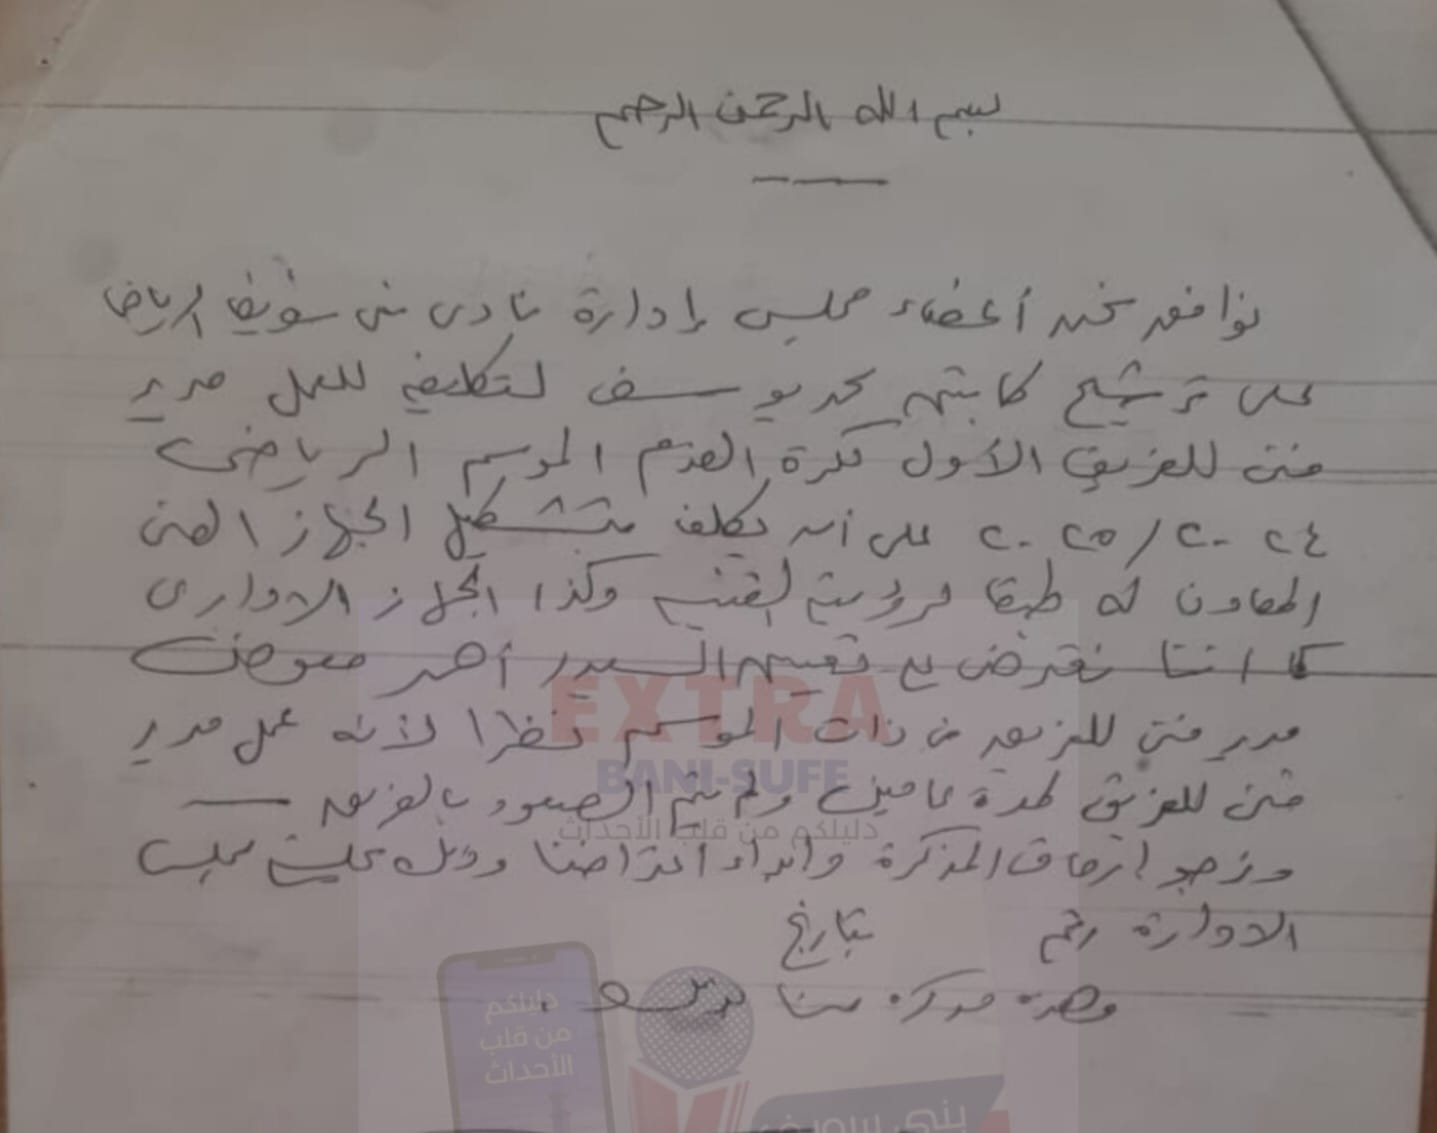 بسم الله الرحمن الرحيم
نوافق نحن أعضاء مجلس إدارة نادى بنى سويف الرياضى
على ترشيح كابتن محمد يوسف لتكليفه للعمل مدير
فنى للفريق الأول لكرة القدم الموسم الرياضى
٢٠٢٤ / ٢٠٢٥ على أن يكلف بتشكيل الجهاز الفنى
المعاون له طبقا لرؤيته الفنيه وكذا الجهاز الادارى
كما اننا نعترض على تعيين السيد / أحمد معوض
مدير فنى للفريق عن ذات الموسم نظرا لأنه عمل مدير
فنى للفريق لمدة عامين ولم يتم الصعود بالفريق
ونرجو إرفاق المذكرة وابداء اعتراضنا وذلك بجلسة مجلس
الادارة رقم بتاريخ
وهذه مذكرة منا بذلك .
EXTRA
BANI-SUFE
دليلكم من قلب الأحداث
دليلكم
من قلب
الأحداث
بنى سويف